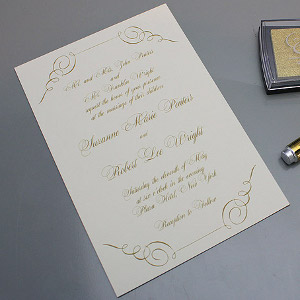 Mr. and Mrs. John Powers
and
Mrs. Franklin Wright
request the honor of your presence
at the marriage of their children
Suzanne Marie Powers
and
Robert Lee Wright
Saturday the eleventh of May
at six o'clock in the evening
Plaza Hotel, New York
Reception to Follow